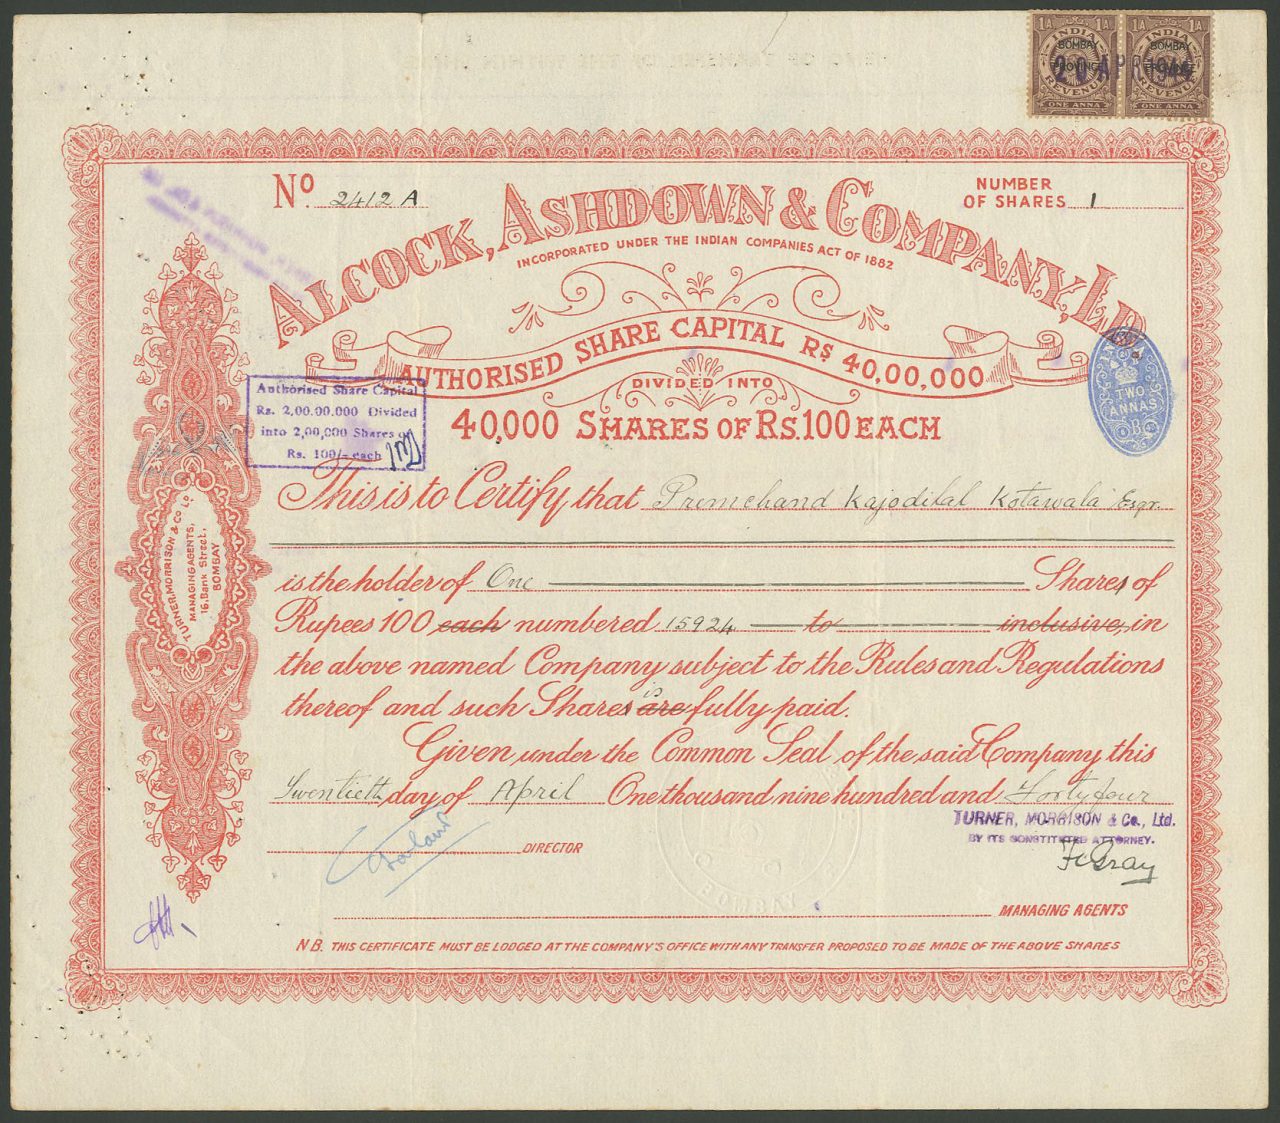 1A 1A 1A 1A
INDIA INDIA
BOMBAY BOMBAY
PROVINCE
20 APR 1944
REVENUE REVENUE
ONE ANNA ONE ANNA
No 2412 A
NUMBER
OF SHARES 1
ALCOCK, ASHDOWN & COMPANY, LD
INCORPORATED UNDER THE INDIAN COMPANIES ACT OF 1882
AUTHORISED SHARE CAPITAL RS 40,00,000
DIVIDED INTO
40,000 SHARES OF RS. 100 EACH
Authorised Share Capital
Rs. 2,00,00,000 Divided
into 2,00,000 Shares of
Rs. 100/- each
TWO
ANNAS
This is to Certify that Premchand Kajodilal Kotawala Esqr.
is the holder of One Shares of
Rupees 100 each numbered 15924 to inclusive, in
the above named Company subject to the Rules and Regulations
thereof and such Shares are is fully paid.
Given under the Common Seal of the said Company this
Twentieth day of April One thousand nine hundred and Forty four
TURNER, MORRISON & Co., Ltd.
BY ITS CONSTITUTED ATTORNEY.
DIRECTOR
MANAGING AGENTS
N.B. THIS CERTIFICATE MUST BE LODGED AT THE COMPANY'S OFFICE WITH ANY TRANSFER PROPOSED TO BE MADE OF THE ABOVE SHARES
TURNER, MORRISON & Co LD.
MANAGING AGENTS,
16, Bank Street,
BOMBAY
BOMBAY